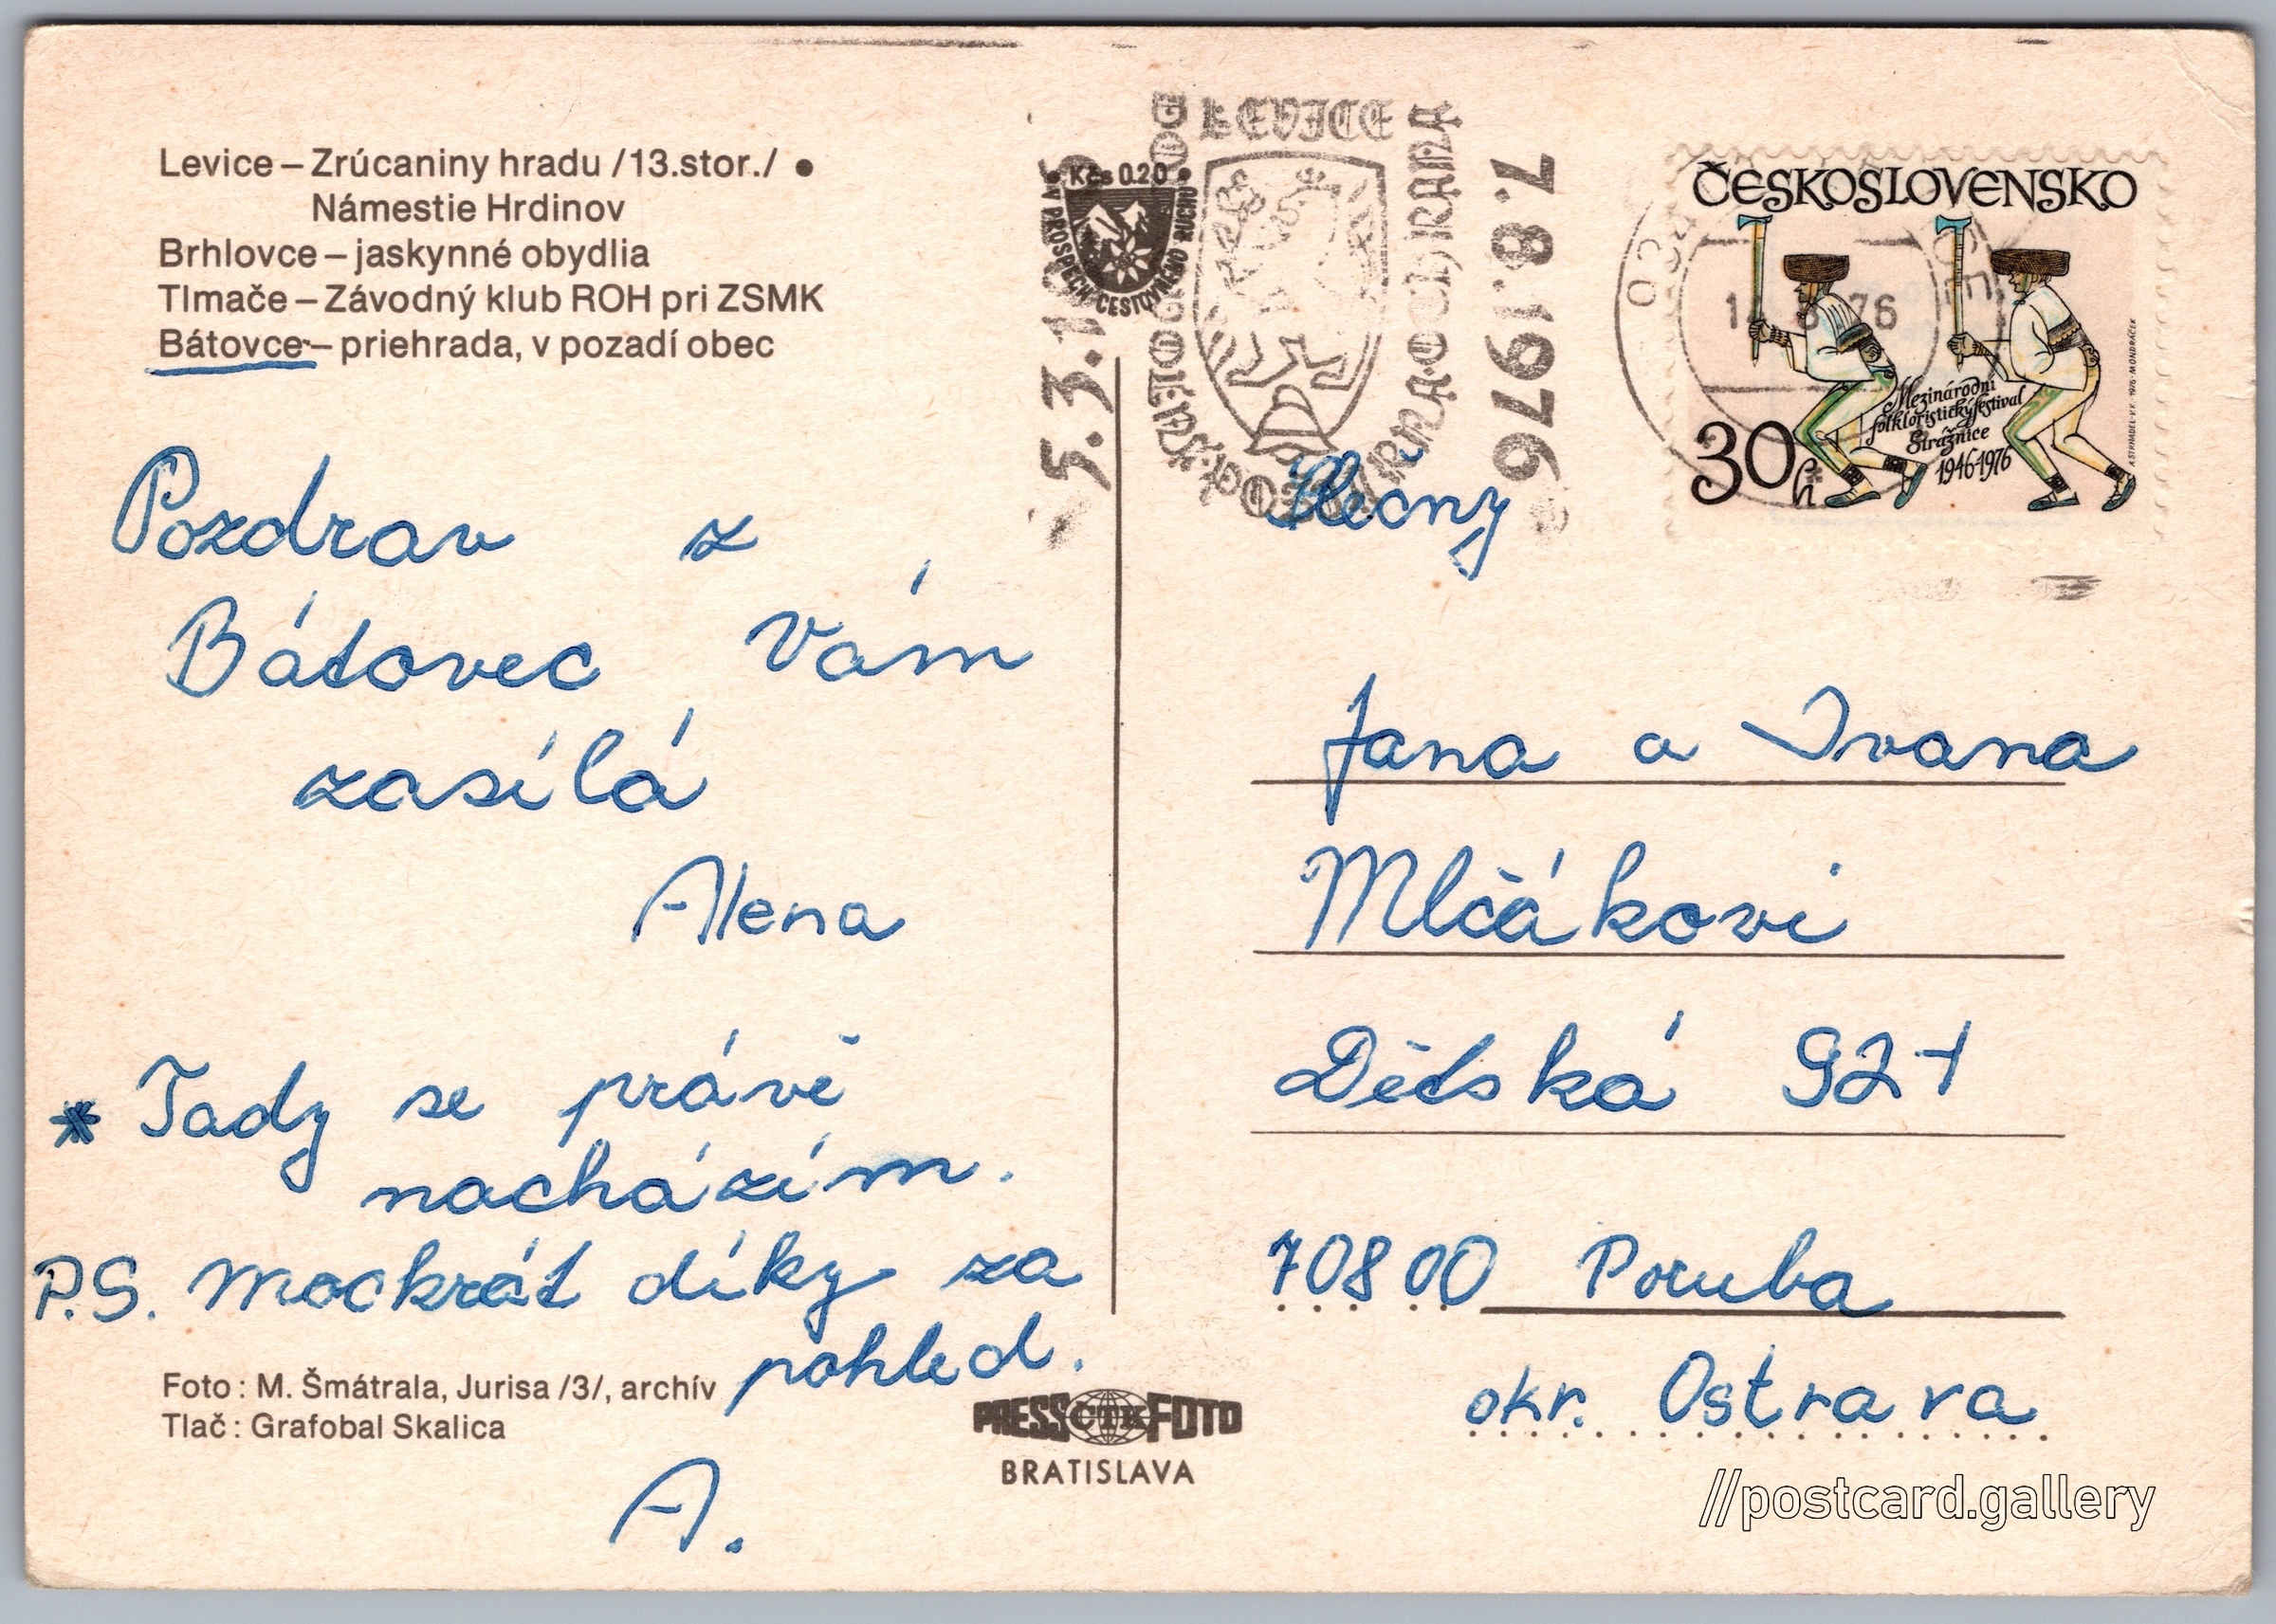 Levice – Zrúcaniny hradu /13.stor./ •
Námestie Hrdinov
Brhlovce – jaskynné obydlia
Tlmače – Závodný klub ROH pri ZSMK
Bátovce – priehrada, v pozadí obec
Pozdrav z
Bátovec Vám
zasílá
Alena
* Tady se právě
nacházím.
P.S. Mockrát díky za
pohled.
A.
Foto: M. Šmátrala, Jurisa /3/, archív
Tlač: Grafobal Skalica
PRESS ČTK FOTO
BRATISLAVA
Kčs 0.20
V PROSPECH CESTOVNÉHO RUCHU
LEVICE
OCHRANA
5.3.1
7.8.1976
ČESKOSLOVENSKO
Mezinárodní
folkloristický festival
Strážnice
1946-1976
30h
Slečny
Jana a Ivana
Mlčákovi
Dětská 921
70800 Poruba
okr. Ostrava
//postcard.gallery